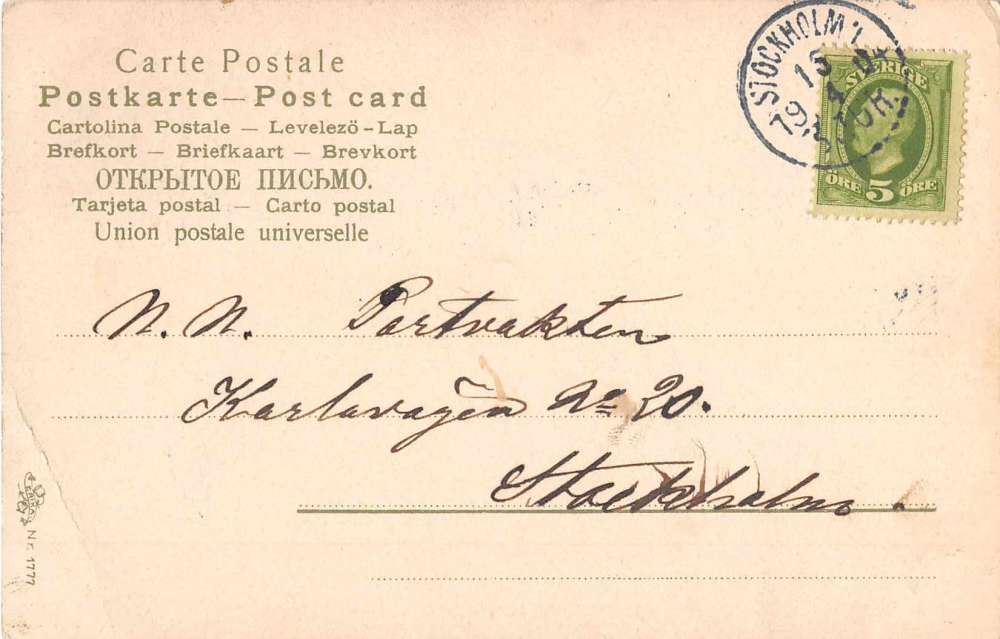 Carte Postale
Postkarte — Post card
Cartolina Postale — Levelező-Lap
Brefkort — Briefkaart — Brevkort
ОТКРЫТОЕ ПИСЬМО.
Tarjeta postal — Carto postal
Union postale universelle
STOCKHOLM 1
13
4
19
SVERIGE
ÖRE 5 ÖRE
N. N. Portvakten
Karlavägen No 20.
Stockholm.
Nr. 1777